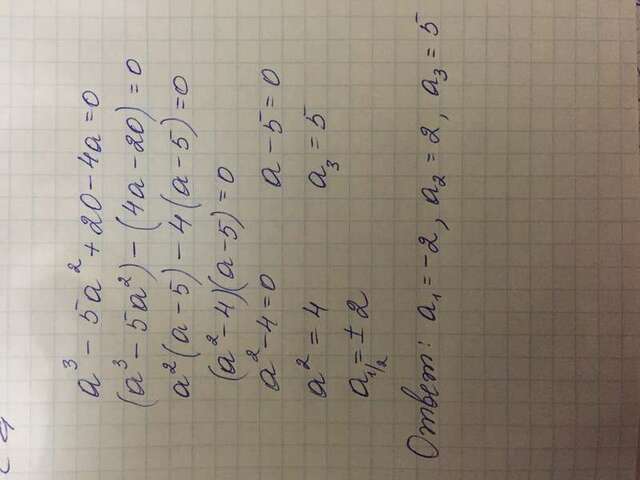 a³ - 5a² + 20 - 4a = 0
(a³ - 5a²) - (4a - 20) = 0
a²(a - 5) - 4(a - 5) = 0
(a² - 4)(a - 5) = 0
a² - 4 = 0 a - 5 = 0
a² = 4 a₃ = 5
a₁/₂ = ± 2
Ответ: a₁ = -2, a₂ = 2, a₃ = 5